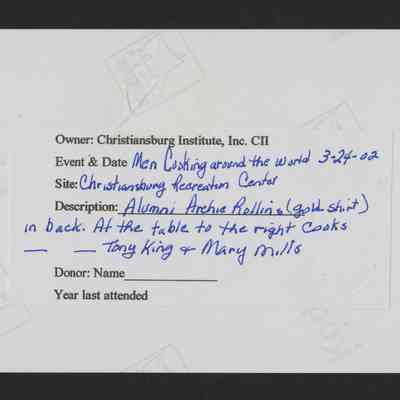 Owner: Christiansburg Institute, Inc. CII
Event & Date Men Cooking around the World 3-24-02
Site: Christiansburg Recreation Center
Description: Alumni Archie Rollins (gold shirt)
in back. At the table to the right cooks
— — Tony King & Mary Mills
Donor: Name____________
Year last attended